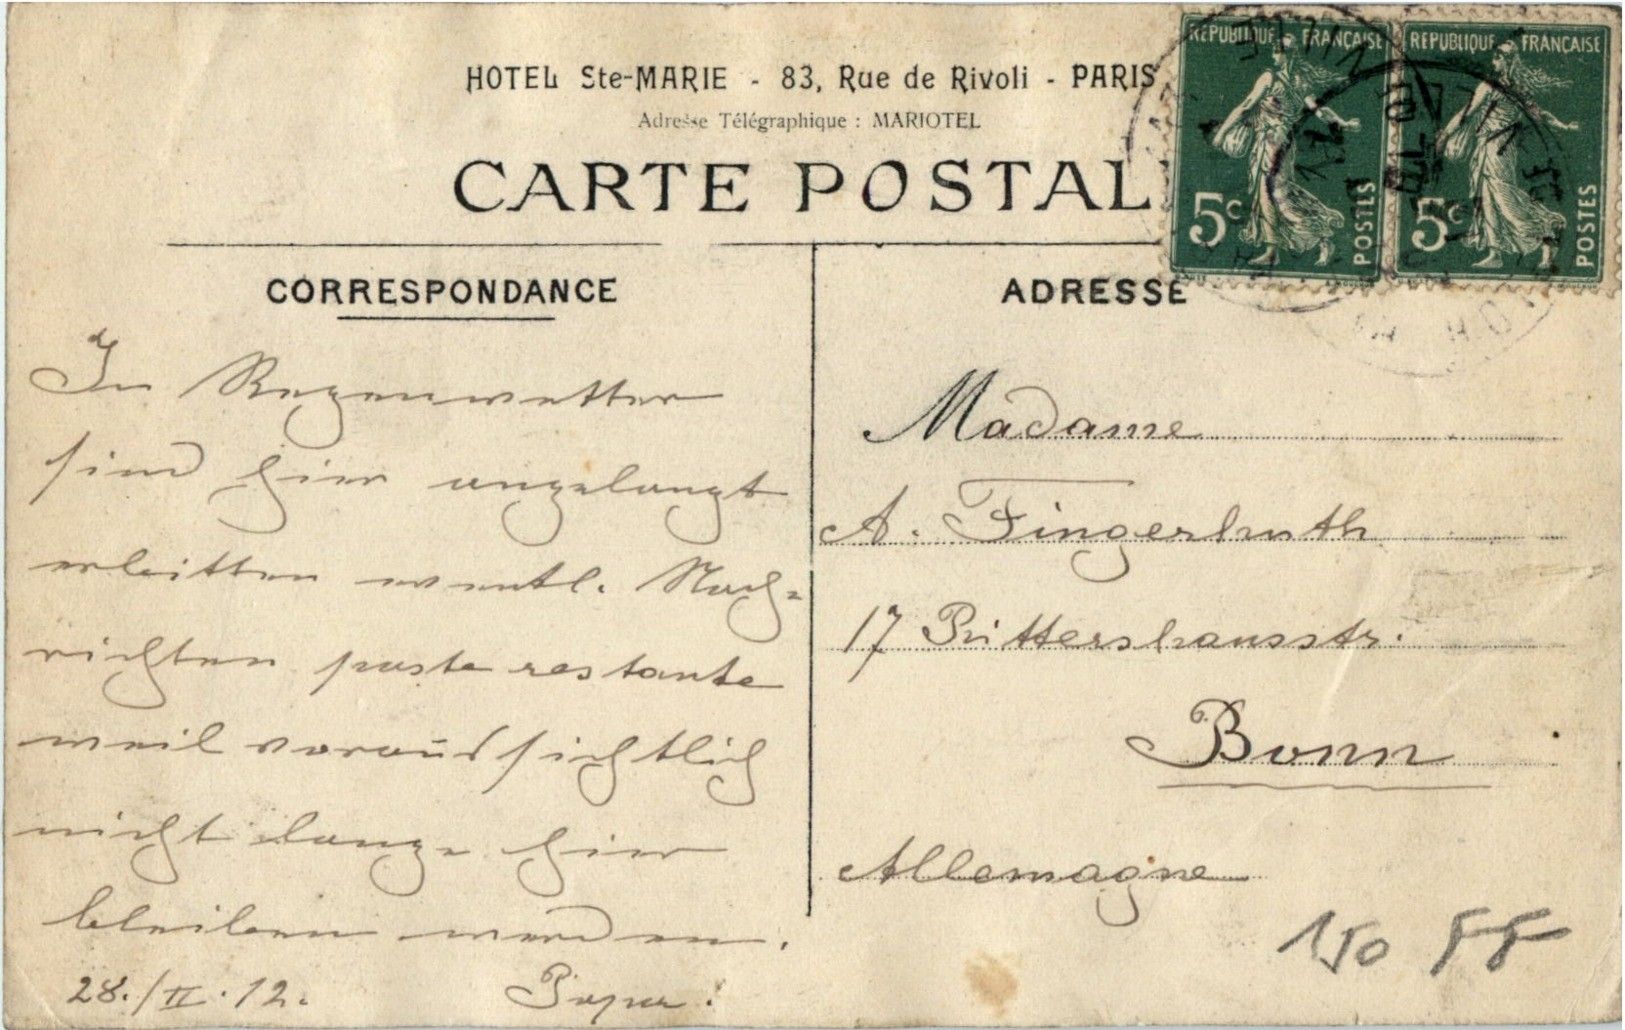 HOTEL Ste-MARIE - 83, Rue de Rivoli - PARIS
Adresse Télégraphique : MARIOTEL
CARTE POSTAL
REPUBLIQUE FRANÇAISE
5c
POSTES
REPUBLIQUE FRANÇAISE
5c
POSTES
CORRESPONDANCE
In Regenwetter
sind hier angelangt
erbitten eventl. Nach-
richten poste restante
weil voraussichtlich
nicht lange hier
bleiben werden.
28./II.12. Papa.
ADRESSE
Madame
A. Fingerhuth
17 Rittershausstr.
Bonn
Allemagne
150 FF